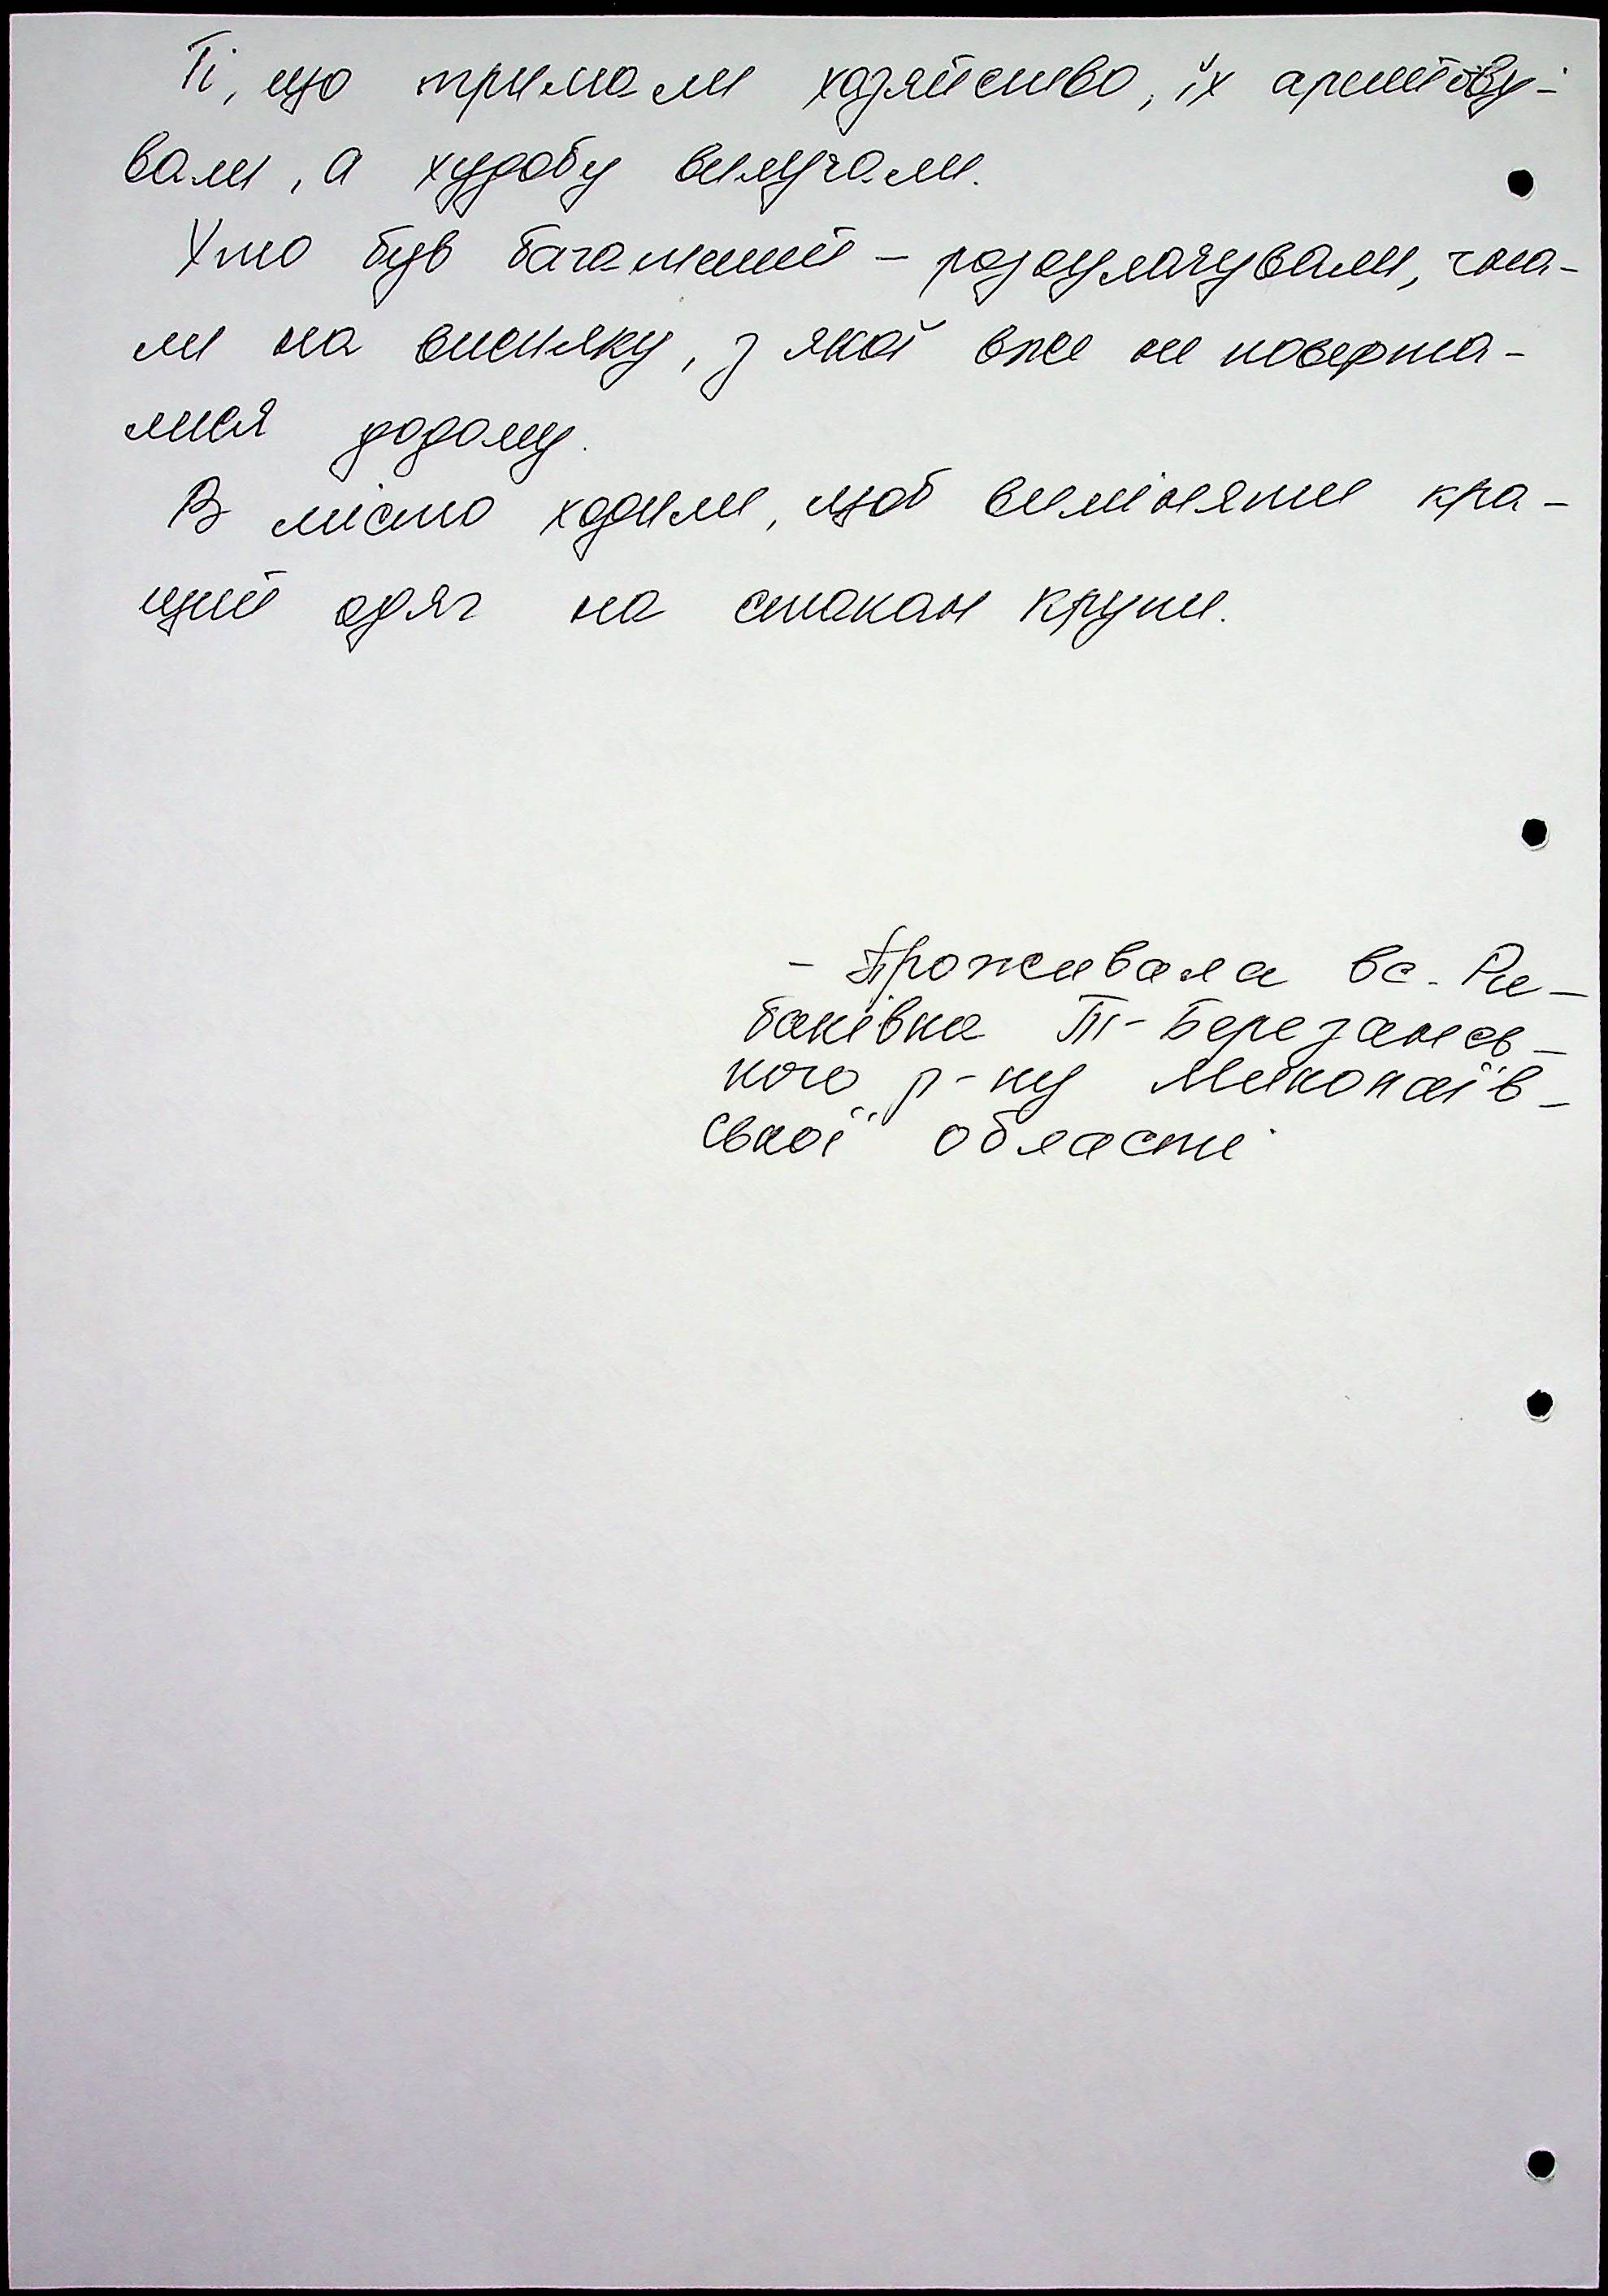 Ті, що тримали хазяйство, їх арештову-
вали, а худобу вилучали.
Хто був багатший – розкулачували, гна-
ли на висилку, з якої вже не поверта-
лися додому.
В місто ходили, щоб виміняти кра-
щий одяг на стакан крупи.
- Проживала в с. Ри-
баківка Т-Березансь-
кого р-ну Миколаїв-
ської області